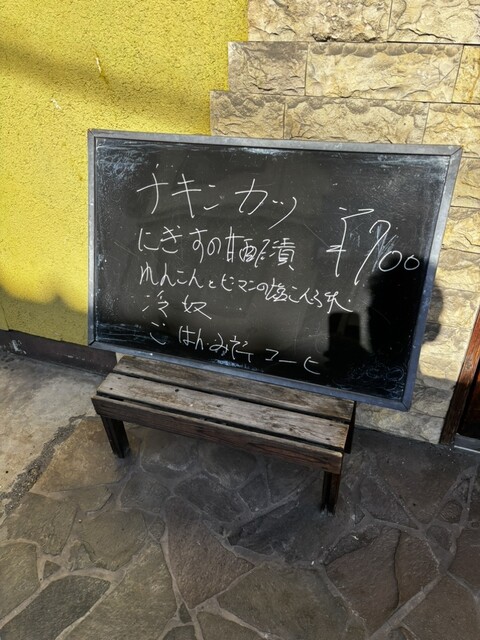 チキンカツ
にぎすの甘酢漬
¥700
れんこんとピーマンの塩こんぶ和
冷奴
ごはん・みそ汁 コーヒ